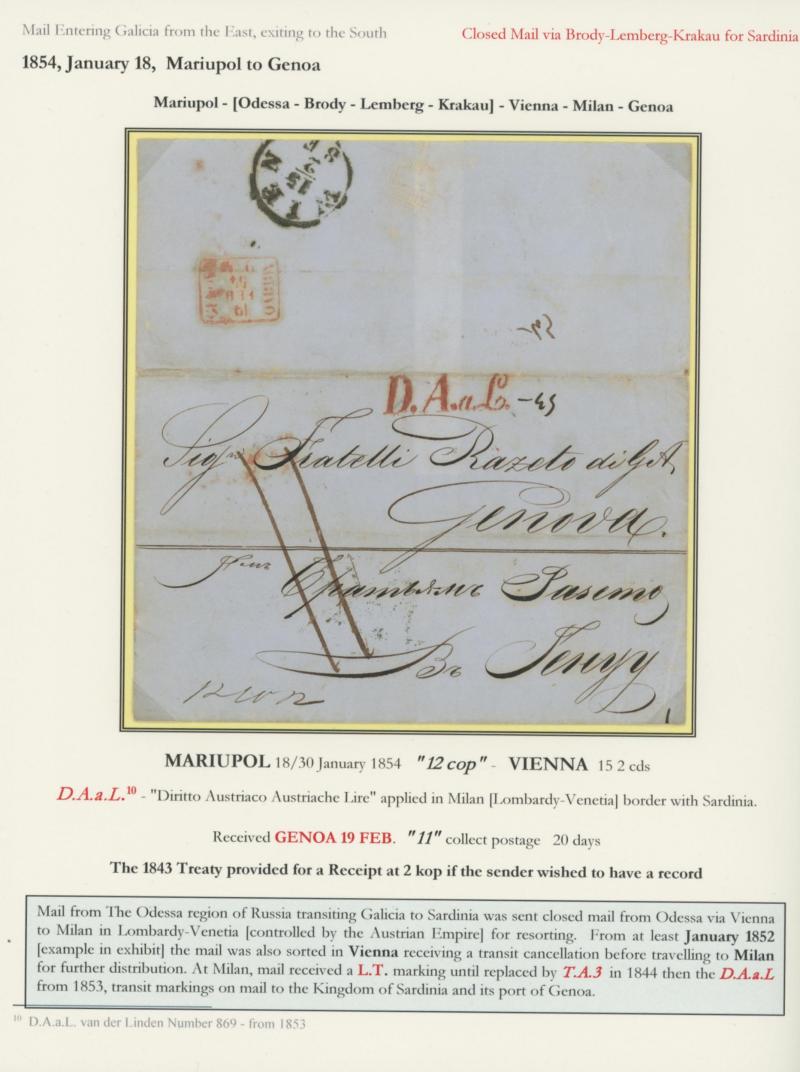 Mail Entering Galicia from the East, exiting to the South
Closed Mail via Brody-Lemberg-Krakau for Sardinia
1854, January 18, Mariupol to Genoa
Mariupol - [Odessa - Brody - Lemberg - Krakau] - Vienna - Milan - Genoa
WIEN
15
2
D.A.a.L.
Sigri Fratelli Razeto di G.A.
Genova.
Братьямъ Расето
Въ Генуу
MARIUPOL 18/30 January 1854 "12 cop" - VIENNA 15 2 cds
D.A.a.L.10 - "Diritto Austriaco Austriache Lire" applied in Milan [Lombardy-Venetia] border with Sardinia.
Received GENOA 19 FEB. "11" collect postage 20 days
The 1843 Treaty provided for a Receipt at 2 kop if the sender wished to have a record
Mail from The Odessa region of Russia transiting Galicia to Sardinia was sent closed mail from Odessa via Vienna
to Milan in Lombardy-Venetia [controlled by the Austrian Empire] for resorting. From at least January 1852
[example in exhibit] the mail was also sorted in Vienna receiving a transit cancellation before travelling to Milan
for further distribution. At Milan, mail received a L.T. marking until replaced by T.A.3 in 1844 then the D.A.a.L
from 1853, transit markings on mail to the Kingdom of Sardinia and its port of Genoa.
10 D.A.a.L. van der Linden Number 869 - from 1853